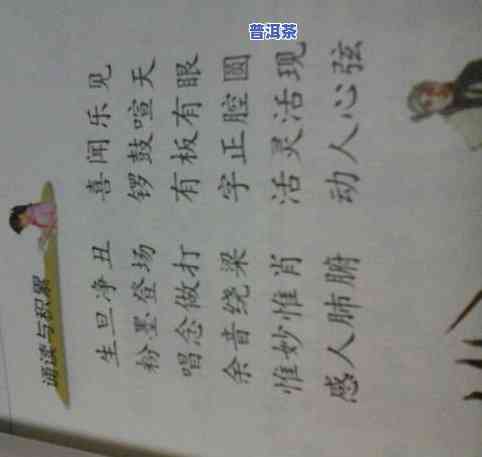 普洱茶
诵读与积累
生旦净丑 喜闻乐见
粉墨登场 锣鼓喧天
唱念做打 有板有眼
余音绕梁 字正腔圆
惟妙惟肖 活灵活现
感人肺腑 动人心弦